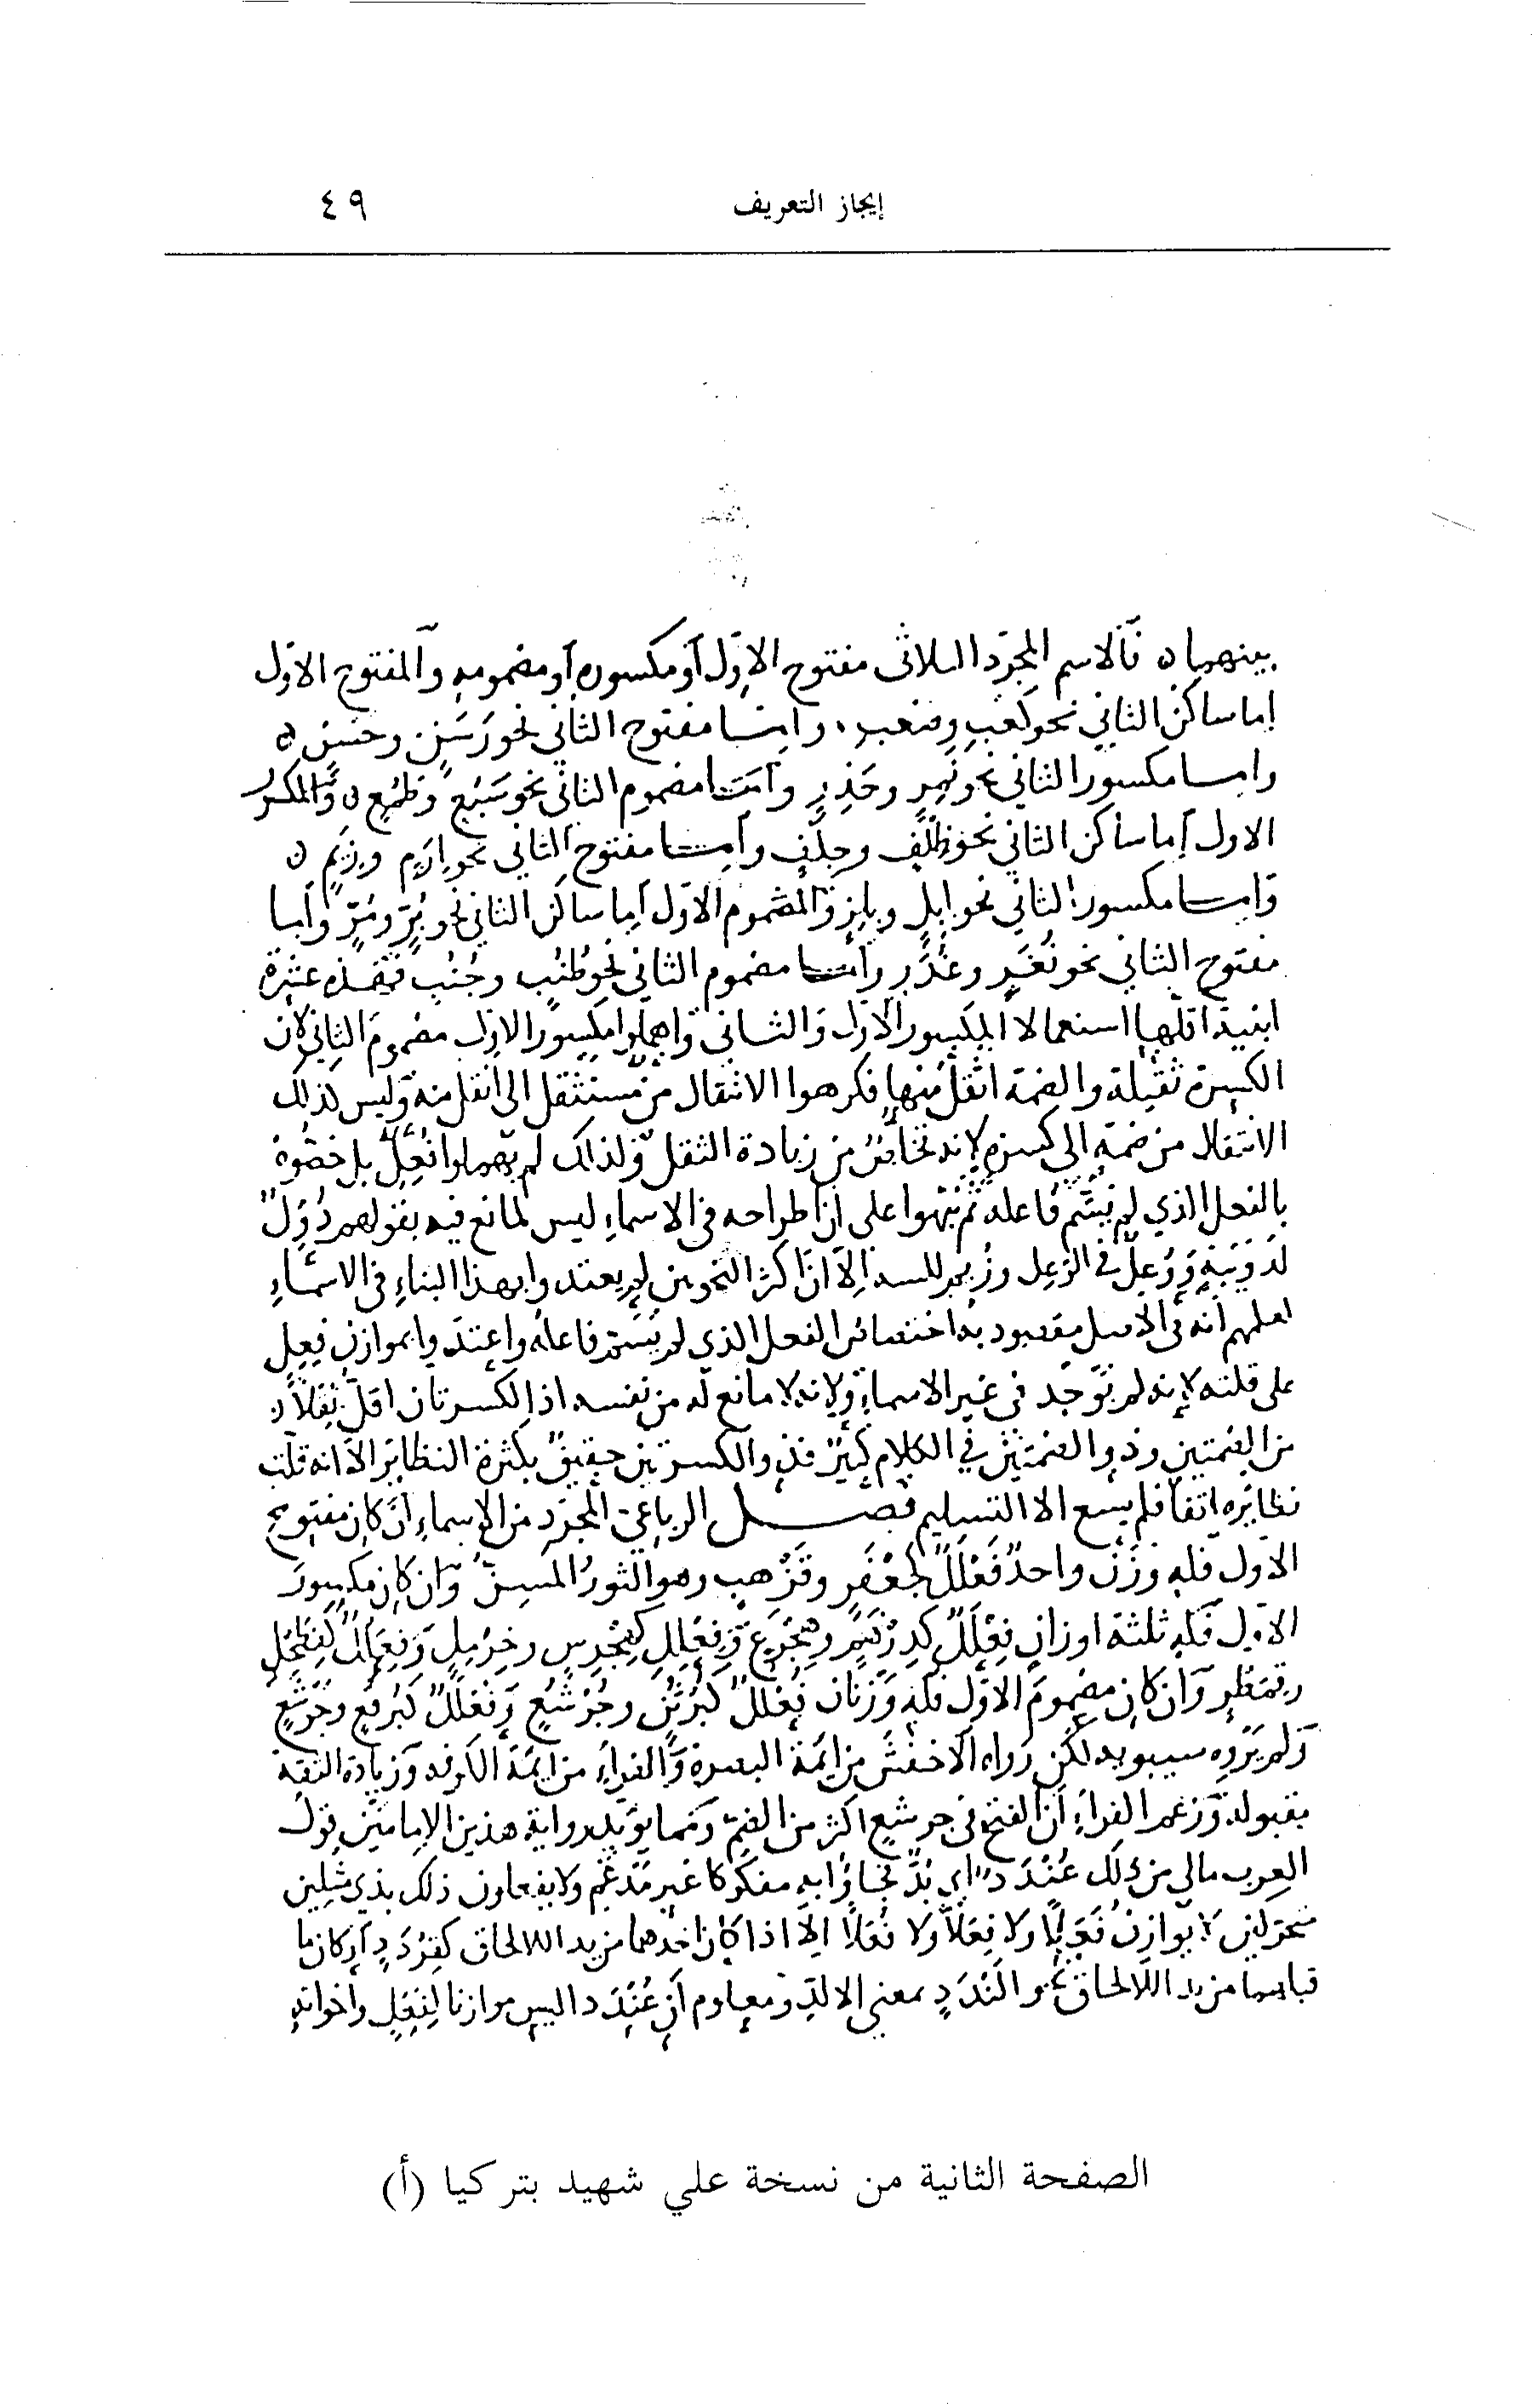 إيجاز التعريف
٤٩
بينهما ه فالاسم المجرد الثلاثى مفتوح الاول أو مكسوره أو مضمومه والمفتوح الاول
إما ساكن الثاني نحو كعب وصعب واما مفتوح الثاني نحو رَسَنٍ وحَسَنٍ ه
واما مكسور الثاني نحو نَمِرٍ وحَذِرٍ وأمّا مضموم الثاني نحو سَبُعٍ وطَمُعٍ ه والمكسور
الاول إما ساكن الثاني نحو ظِلْفٍ وجِلْفٍ وأما مفتوح الثاني نحو إرَمٍ وزِيَمٍ ه
وأما مكسور الثاني نحو إبِلٍ وبِلِزٍ والمضموم الاول إما ساكن الثاني نحو بُرٍّ ومُرٍّ وأما
مفتوح الثاني نحو نُغَرٍ وغُدَرٍ وأما مضموم الثاني نحو طُنُب وجُنُبٍ فهذه عشرة
ابنية اقلها استعمالا المكسور الاول والثاني وأهملوا مكسور الاول مضموم الثاني لان
الكسرة ثقيلة والضمة اثقل منها فكرهوا الانتقال من مستثقل الى أثقل منه وليس كذلك
الانتقال من ضمة الى كسرة لانه تخلص من زيادة الثقل ولذلك لم يهملوا فُعِلٌ بل خصوه
بالفعل الذي لم يُسَمَّ فاعله ثم نبهوا على ان اطراحه فى الاسماء ليس لمانع فيه بقولهم دُئِلٌ
لدُوَيْبَّةٍ ووُعِلٌ فى الوَعِل ورُئِمٌ للسه إلا أن أكثر النحويين لم يعتدوا بهذا البناء فى الاسماء
لعلمهم أنه فى الاصل مقصود به اختصاص الفعل الذي لم يُسَمَّ فاعله واعتدوا بموازن فِعِلٍ
على قلته لانه لم يوجد فى غير الاسماء ولانه لا مانع له من نفسه اذ الكسرتان اقل ثقلا
من الضمتين وذو الضمتين في الكلام كثير فذو الكسرتين حقيق بكثرة النظائر الا انه قلت
نظائره اتفاقا فلم يسع الا التسليم فصل الرباعي المجرد من الاسماء ان كان مفتوح
الاول فله وزن واحد فَعْلَلٌ كجَعْفَرٍ وقَرْهبٍ وهو الثور المسن وان كان مكسور
الاول فله ثلثة اوزان فِعْلَلٌ كدِرْهَمٍ وهِجْرَعٍ وفِعْلِلٍ كعِجْرِسٍ وخِرْمِلٍ وفِعَلٌّ كفِطَحْلٍ
وقِمَطْرٍ وان كان مضموم الاول فله وزنان فُعْلُلٌ كبُرْثُنٍ وجُرْشُعٍ وفُعْلَلٌ كبُرْقَعٍ وجُرْشَعٍ
ولم يَرْوِه سيبويه لكن رواه الاخفش من ائمة البصرة والفراء من ايمة الكوفه وزيادة الثقة
مقبولة وزعم الفراء أن الفتح فى جرشع أكثر من الضم ومما يؤيد رواية هذين الإمامين قول
العرب مالى من ذلك عُنْدَدٌ أي بُدٌّ فجاؤا به مفكوكا غير مدغم ولا يفعلون ذلك بذي مثلين
متحركين لا يوازن فَعَلًا ولا فِعَلًا ولا فُعَلًا إلا اذا كان أحدهما مزيدا للالحاق كقَرْدَدٍ أو كان ما
قبلهما مزيدا للالحاق نحو أَلَنْدَدٍ بمعنى الالد ومعلوم أن عُنْدَدا ليس موازنا لفَعَلٍ وأخواته
الصفحة الثانية من نسخة علي شهيد بتركيا (أ)